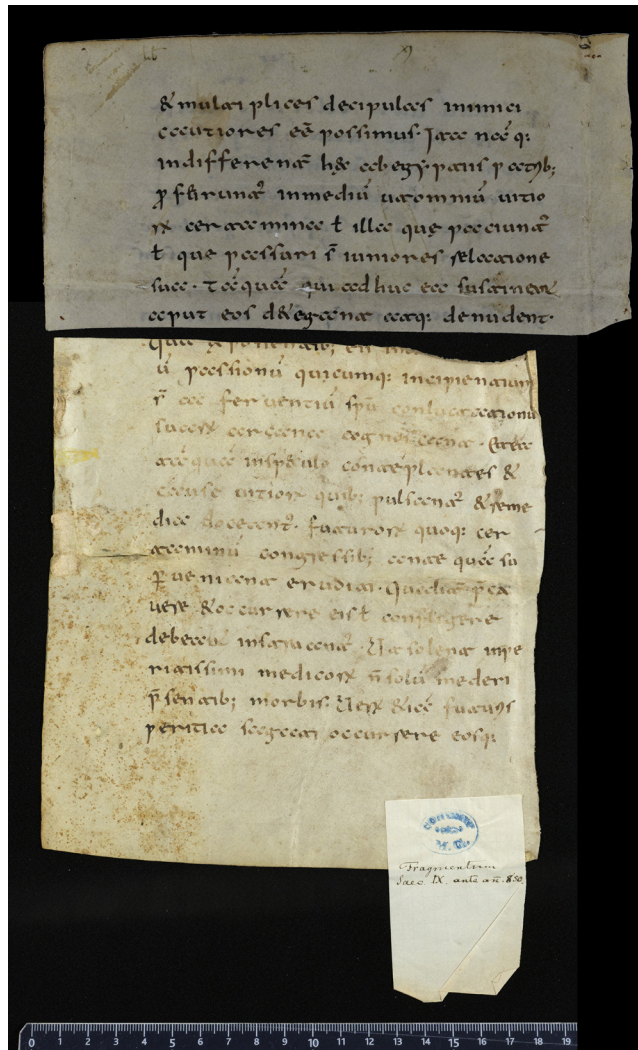 & multi plices decipulas inimici
cautiores eē possimus. Itaq:
indifferent̄ hęc ab egyp. patis patrib;
ꝓ ferunt̄ in mediū ut omniū uitio
rū certamina ł illa que paciunt̄
ł que passuri s̄ iuniores relatione
sua. Tāquā qui ad huc ea sustineat
caput eos d&egant atq: denudent.
ū passionū quicumq: incipientium
s̄ ac feruentiū sp̄u conluctationū
suarū arcana cognoscant.
tāquā in speculo contēplantes &
causę uitiorū quib; pulsant̄ & reme
dia doceant̄. futurorū quoq: cer
taminū congressib; ante quā su
ꝑ ueniant erudiat. Qualit̄ p̄ca
uere & occurrere eis ł confligere
debeat instruant̄. Ut solent inpe
ritissimi medicorū n̄ solū mederi
p̄sentib; morbis. Uerū &iā futuris
peritia sagaci occurrere eosq:
Fragmentum
Saec. IX. ante an. 850.
0 1 2 3 4 5 6 7 8 9 10 11 12 13 14 15 16 17 18 19